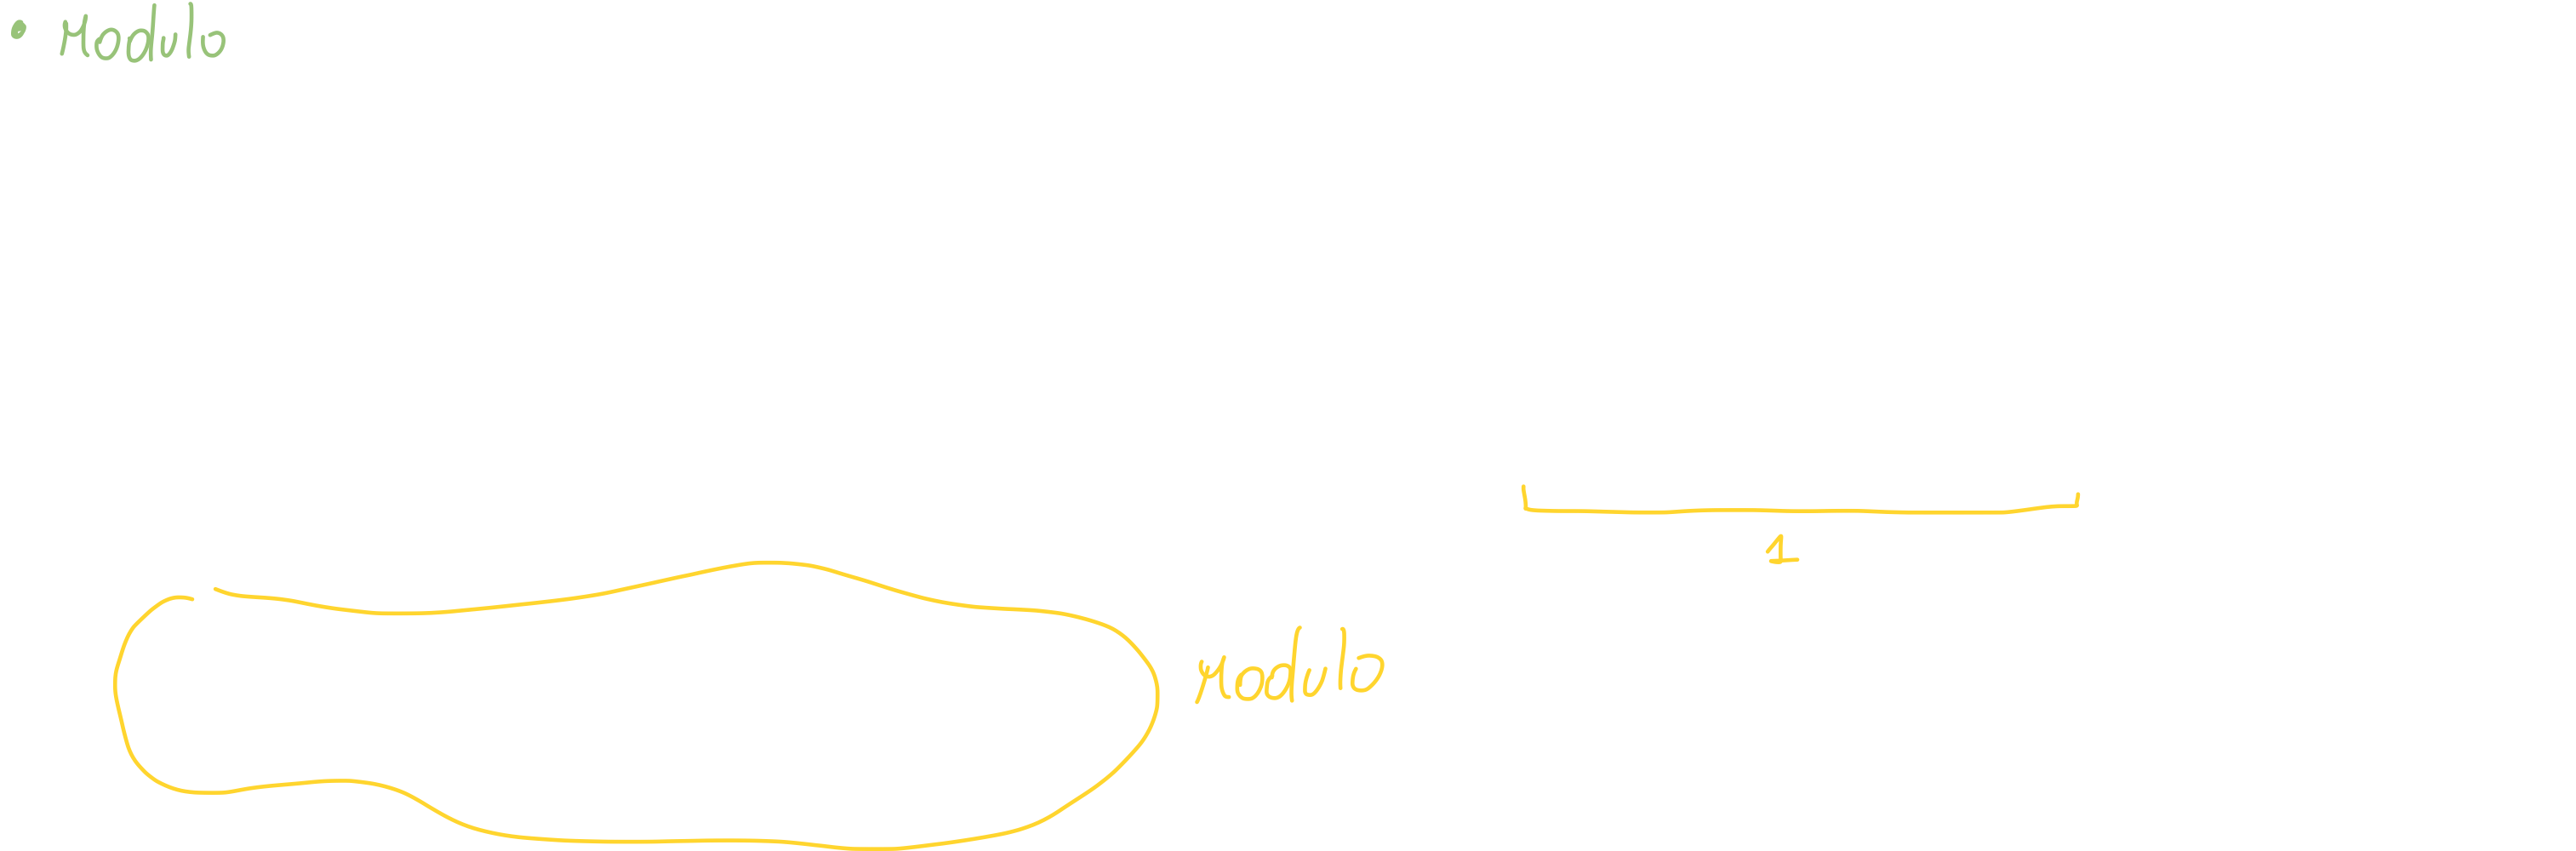 • Modulo
1
Modulo